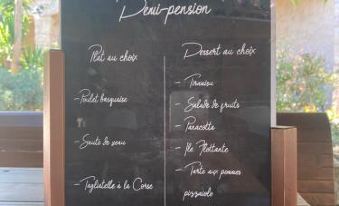 Demi-pension
Plat au choix
- Poulet basquaise
- Saute de veau
- Tagliatelle à la Corse
Dessert au choix
- Tiramisu
- Salade de fruits
- Panacotta
- Ile Flottante
- Tarte aux pommes
pizzaiole